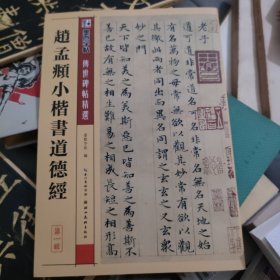 老子
道可道非常道名可名非常名無名天地之始
有名萬物之母常無欲以觀其妙常有欲以觀
其徼此兩者同出而異名同謂之玄玄之又玄衆
妙之門
天下皆知美之為美斯惡已皆知善之為善斯不
善已故有無之相生難易之相成長短之相形高
傳世碑帖精選
趙孟頫小楷書道德經
第一輯